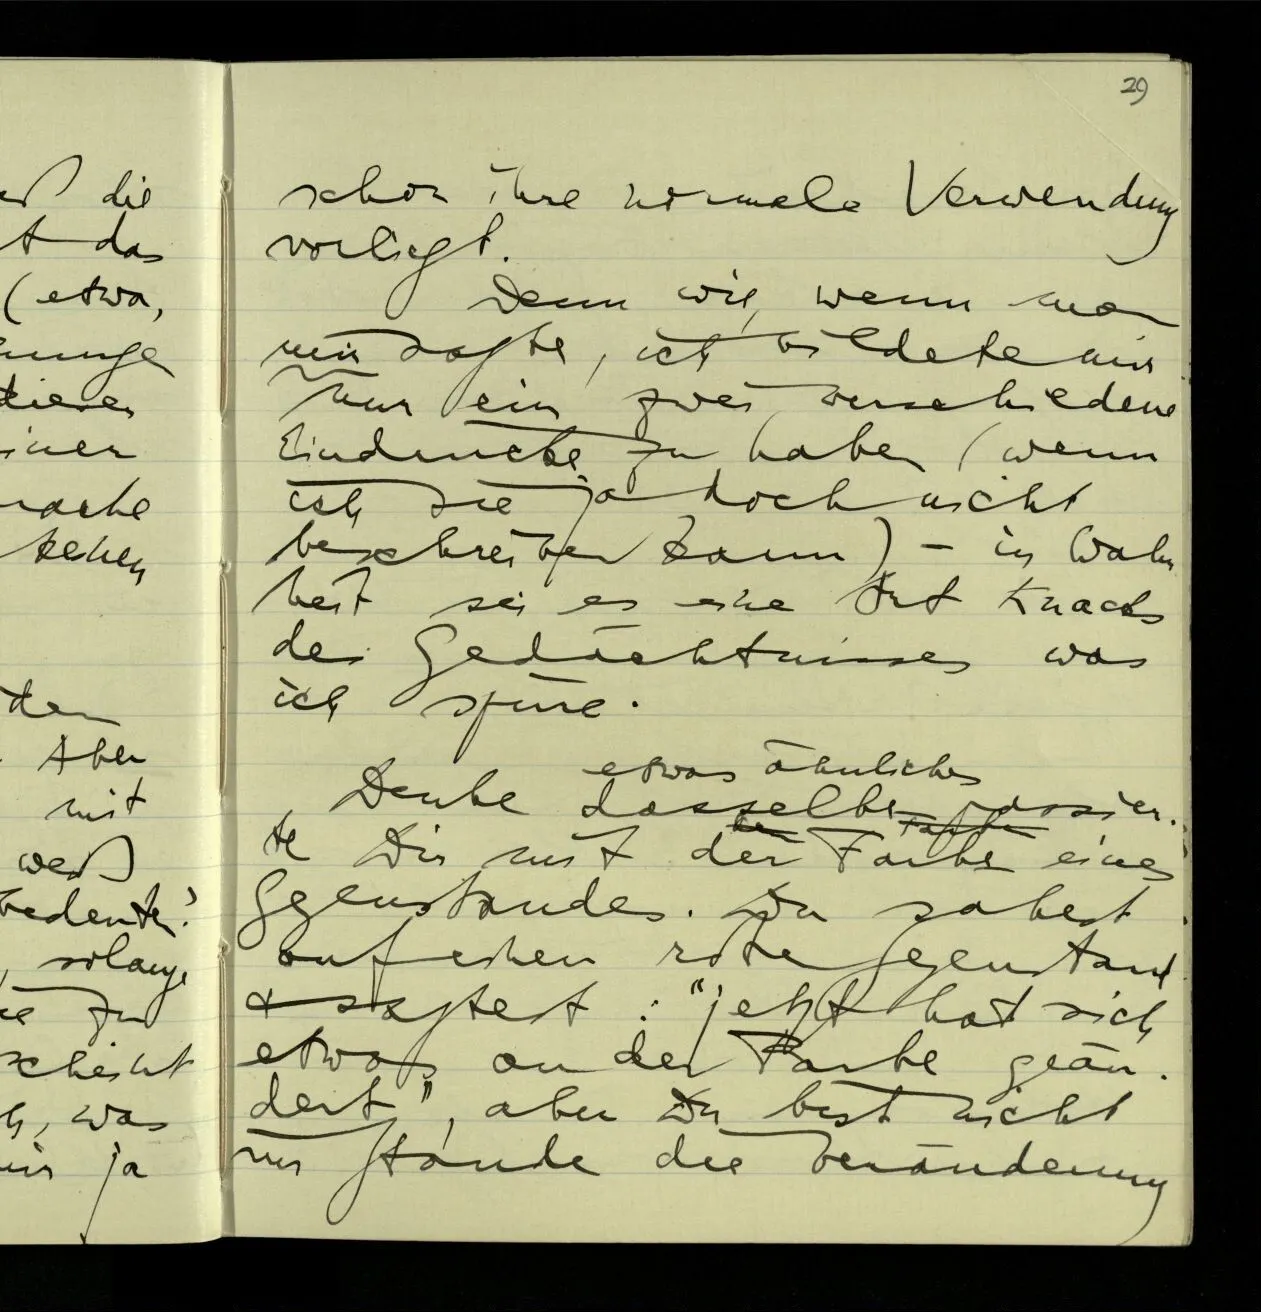 29
schon ihre normale Verwendung
vorliegt.
Denn wie, wenn man
mir sagte, ich bildete mir
nur ein zwei verschiedene
Eindrücke zu haben (wenn
ich sie ja doch nicht
beschreiben kann) – in Wahr
heit sei es eine Art Knacks
des Gedächtnisses was
ich spüre.
etwas ähnliches
Denke dasselbe passier-
te Dir mit der Farbe eines
Gegenstandes. Du sahest
auf einen roten Gegenstand
& sagtest: "jetzt hat sich
etwas an der Farbe geän-
dert", aber Du bist nicht
im Stande die Veränderung
die
t das
(etwa,
dieser
einer
sehen
den
Aber
mit
weiß
bedeutet?
, solange
ie zu
scheint
h, was
mir ja